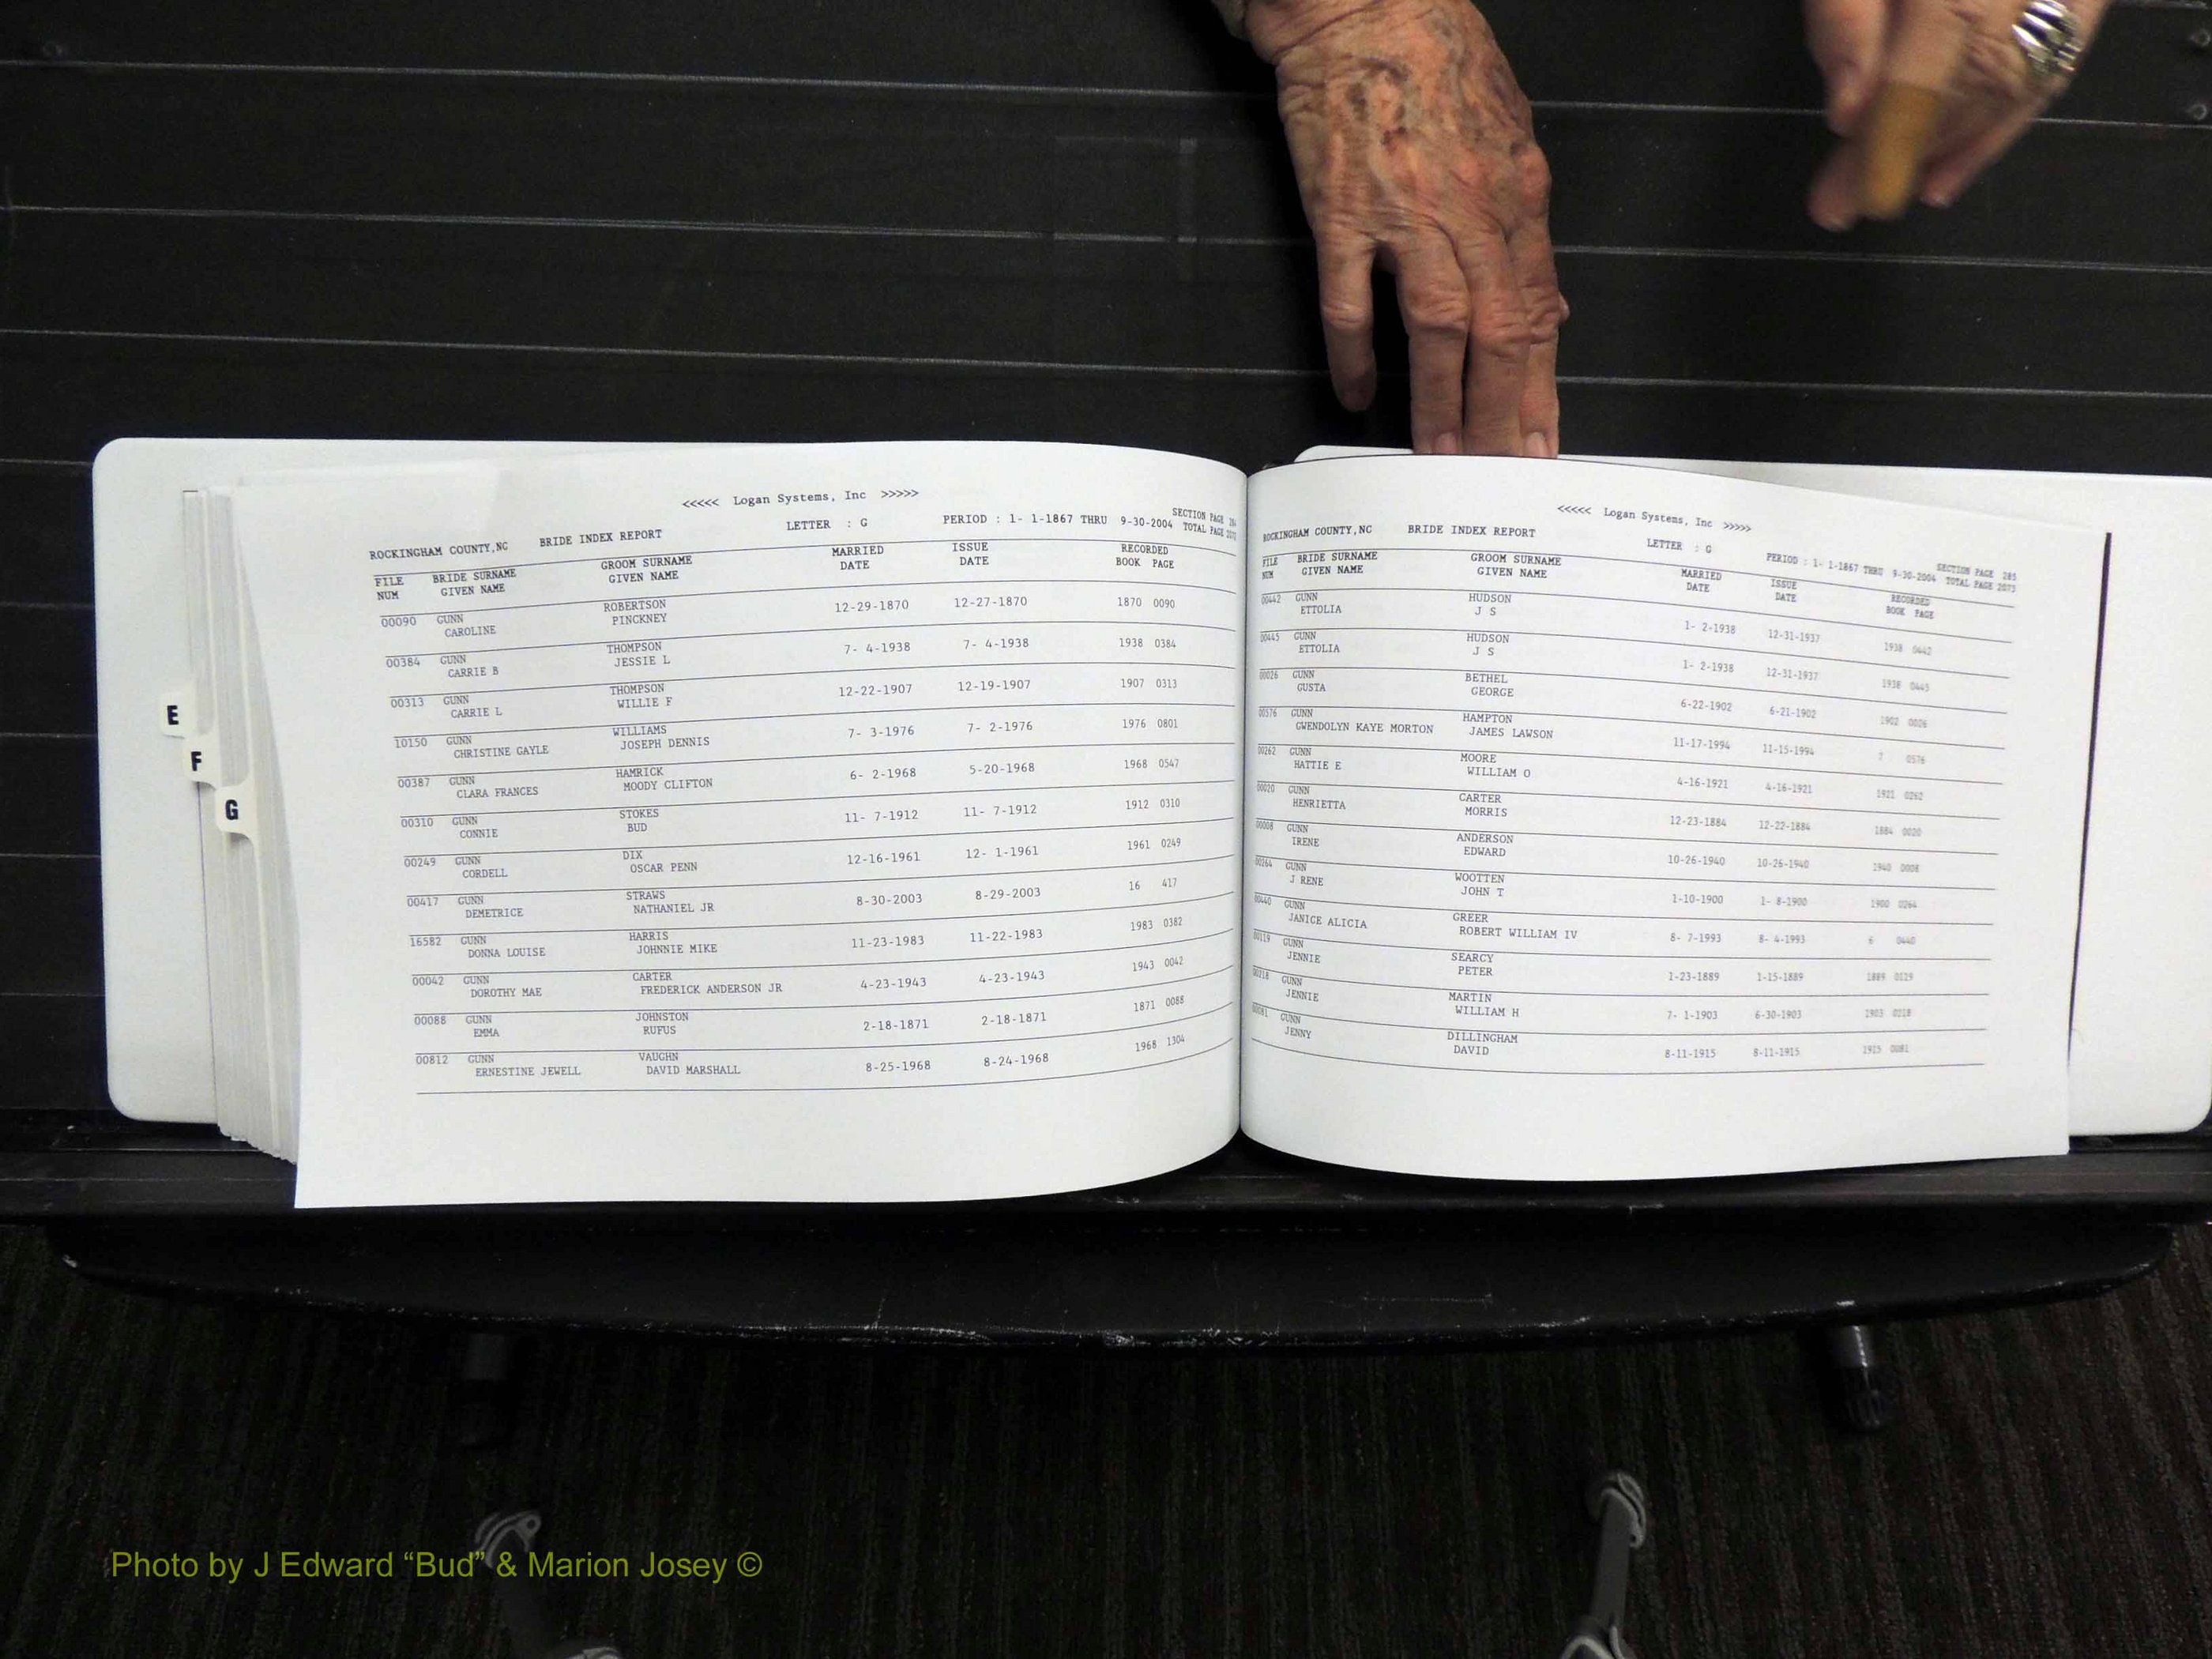 E
F
G
<<<<< Logan Systems, Inc >>>>>
ROCKINGHAM COUNTY,NC BRIDE INDEX REPORT LETTER : G PERIOD : 1- 1-1867 THRU 9-30-2004 SECTION PAGE
TOTAL PAGE
FILE BRIDE SURNAME GROOM SURNAME MARRIED ISSUE RECORDED
NUM GIVEN NAME GIVEN NAME DATE DATE BOOK PAGE
00090 GUNN ROBERTSON 12-29-1870 12-27-1870 1870 0090
CAROLINE PINCKNEY
00384 GUNN THOMPSON 7- 4-1938 7- 4-1938 1938 0384
CARRIE B JESSIE L
00313 GUNN THOMPSON 12-22-1907 12-19-1907 1907 0313
CARRIE L WILLIE F
10150 GUNN WILLIAMS 7- 3-1976 7- 2-1976 1976 0801
CHRISTINE GAYLE JOSEPH DENNIS
00387 GUNN HAMRICK 6- 2-1968 5-20-1968 1968 0547
CLARA FRANCES MOODY CLIFTON
00310 GUNN STOKES 11- 7-1912 11- 7-1912 1912 0310
CONNIE BUD
00249 GUNN DIX 12-16-1961 12- 1-1961 1961 0249
CORDELL OSCAR PENN
00417 GUNN STRAWS 8-30-2003 8-29-2003 16 417
DEMETRICE NATHANIEL JR
16582 GUNN HARRIS 11-23-1983 11-22-1983 1983 0382
DONNA LOUISE JOHNNIE MIKE
00042 GUNN CARTER 4-23-1943 4-23-1943 1943 0042
DOROTHY MAE FREDERICK ANDERSON JR
00088 GUNN JOHNSTON 2-18-1871 2-18-1871 1871 0088
EMMA RUFUS
00812 GUNN VAUGHN 8-25-1968 8-24-1968 1968 1304
ERNESTINE JEWELL DAVID MARSHALL
<<<<< Logan Systems, Inc >>>>>
ROCKINGHAM COUNTY,NC BRIDE INDEX REPORT LETTER : G PERIOD : 1- 1-1867 THRU 9-30-2004 SECTION PAGE 285
TOTAL PAGE 2073
FILE BRIDE SURNAME GROOM SURNAME MARRIED ISSUE RECORDED
NUM GIVEN NAME GIVEN NAME DATE DATE BOOK PAGE
00442 GUNN HUDSON 1- 2-1938 12-31-1937 1938 0442
ETTOLIA J S
00445 GUNN HUDSON 1- 2-1938 12-31-1937 1938 0445
ETTOLIA J S
00026 GUNN BETHEL 6-22-1902 6-21-1902 1902 0026
GUSTA GEORGE
00576 GUNN HAMPTON 11-17-1994 11-15-1994 7 0576
GWENDOLYN KAYE MORTON JAMES LAWSON
00262 GUNN MOORE 4-16-1921 4-16-1921 1921 0262
HATTIE E WILLIAM O
00020 GUNN CARTER 12-23-1884 12-22-1884 1884 0020
HENRIETTA MORRIS
00008 GUNN ANDERSON 10-26-1940 10-26-1940 1940 0008
IRENE EDWARD
00264 GUNN WOOTTEN 1-10-1900 1- 8-1900 1900 0264
J RENE JOHN T
00440 GUNN GREER 8- 7-1993 8- 4-1993 6 0440
JANICE ALICIA ROBERT WILLIAM IV
00119 GUNN SEARCY 1-23-1889 1-15-1889 1889 0119
JENNIE PETER
00218 GUNN MARTIN 7- 1-1903 6-30-1903 1903 0218
JENNIE WILLIAM H
00081 GUNN DILLINGHAM 8-11-1915 8-11-1915 1915 0081
JENNY DAVID
Photo by J Edward “Bud” & Marion Josey ©